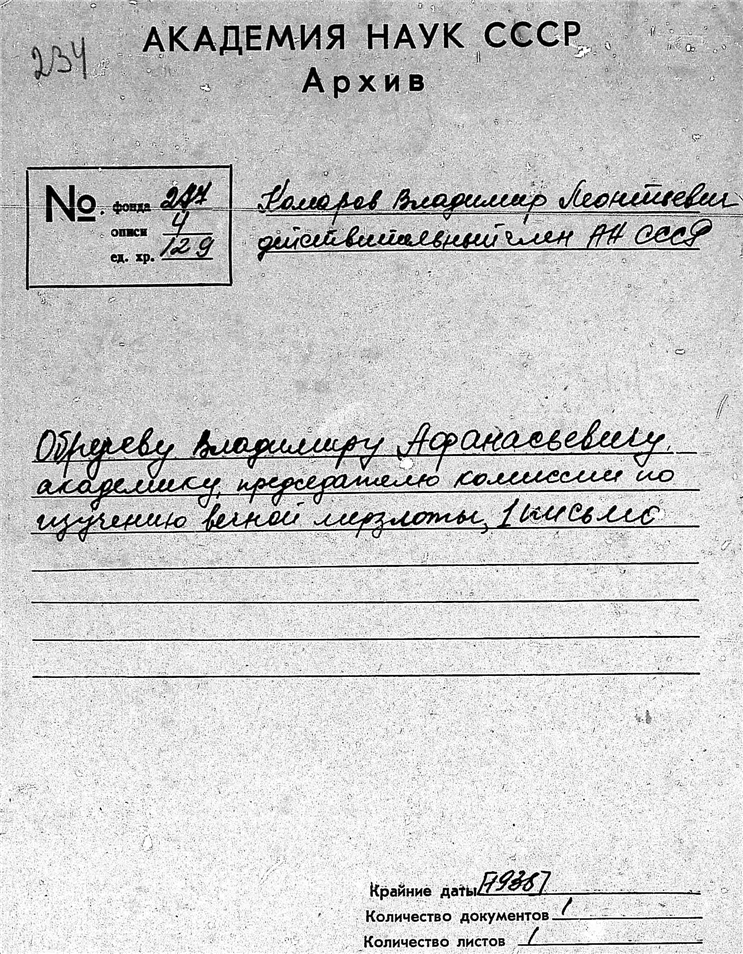 234
АКАДЕМИЯ НАУК СССР
Архив
№. фонда 277
описи 4
ед. хр. 129
Комаров Владимир Леонтьевич
действительный член АН СССР
Обручеву Владимиру Афанасьевичу,
академику, председателю комиссии по
изучению вечной мерзлоты, 1 письмо
Крайние даты [1938]
Количество документов 1
Количество листов 1